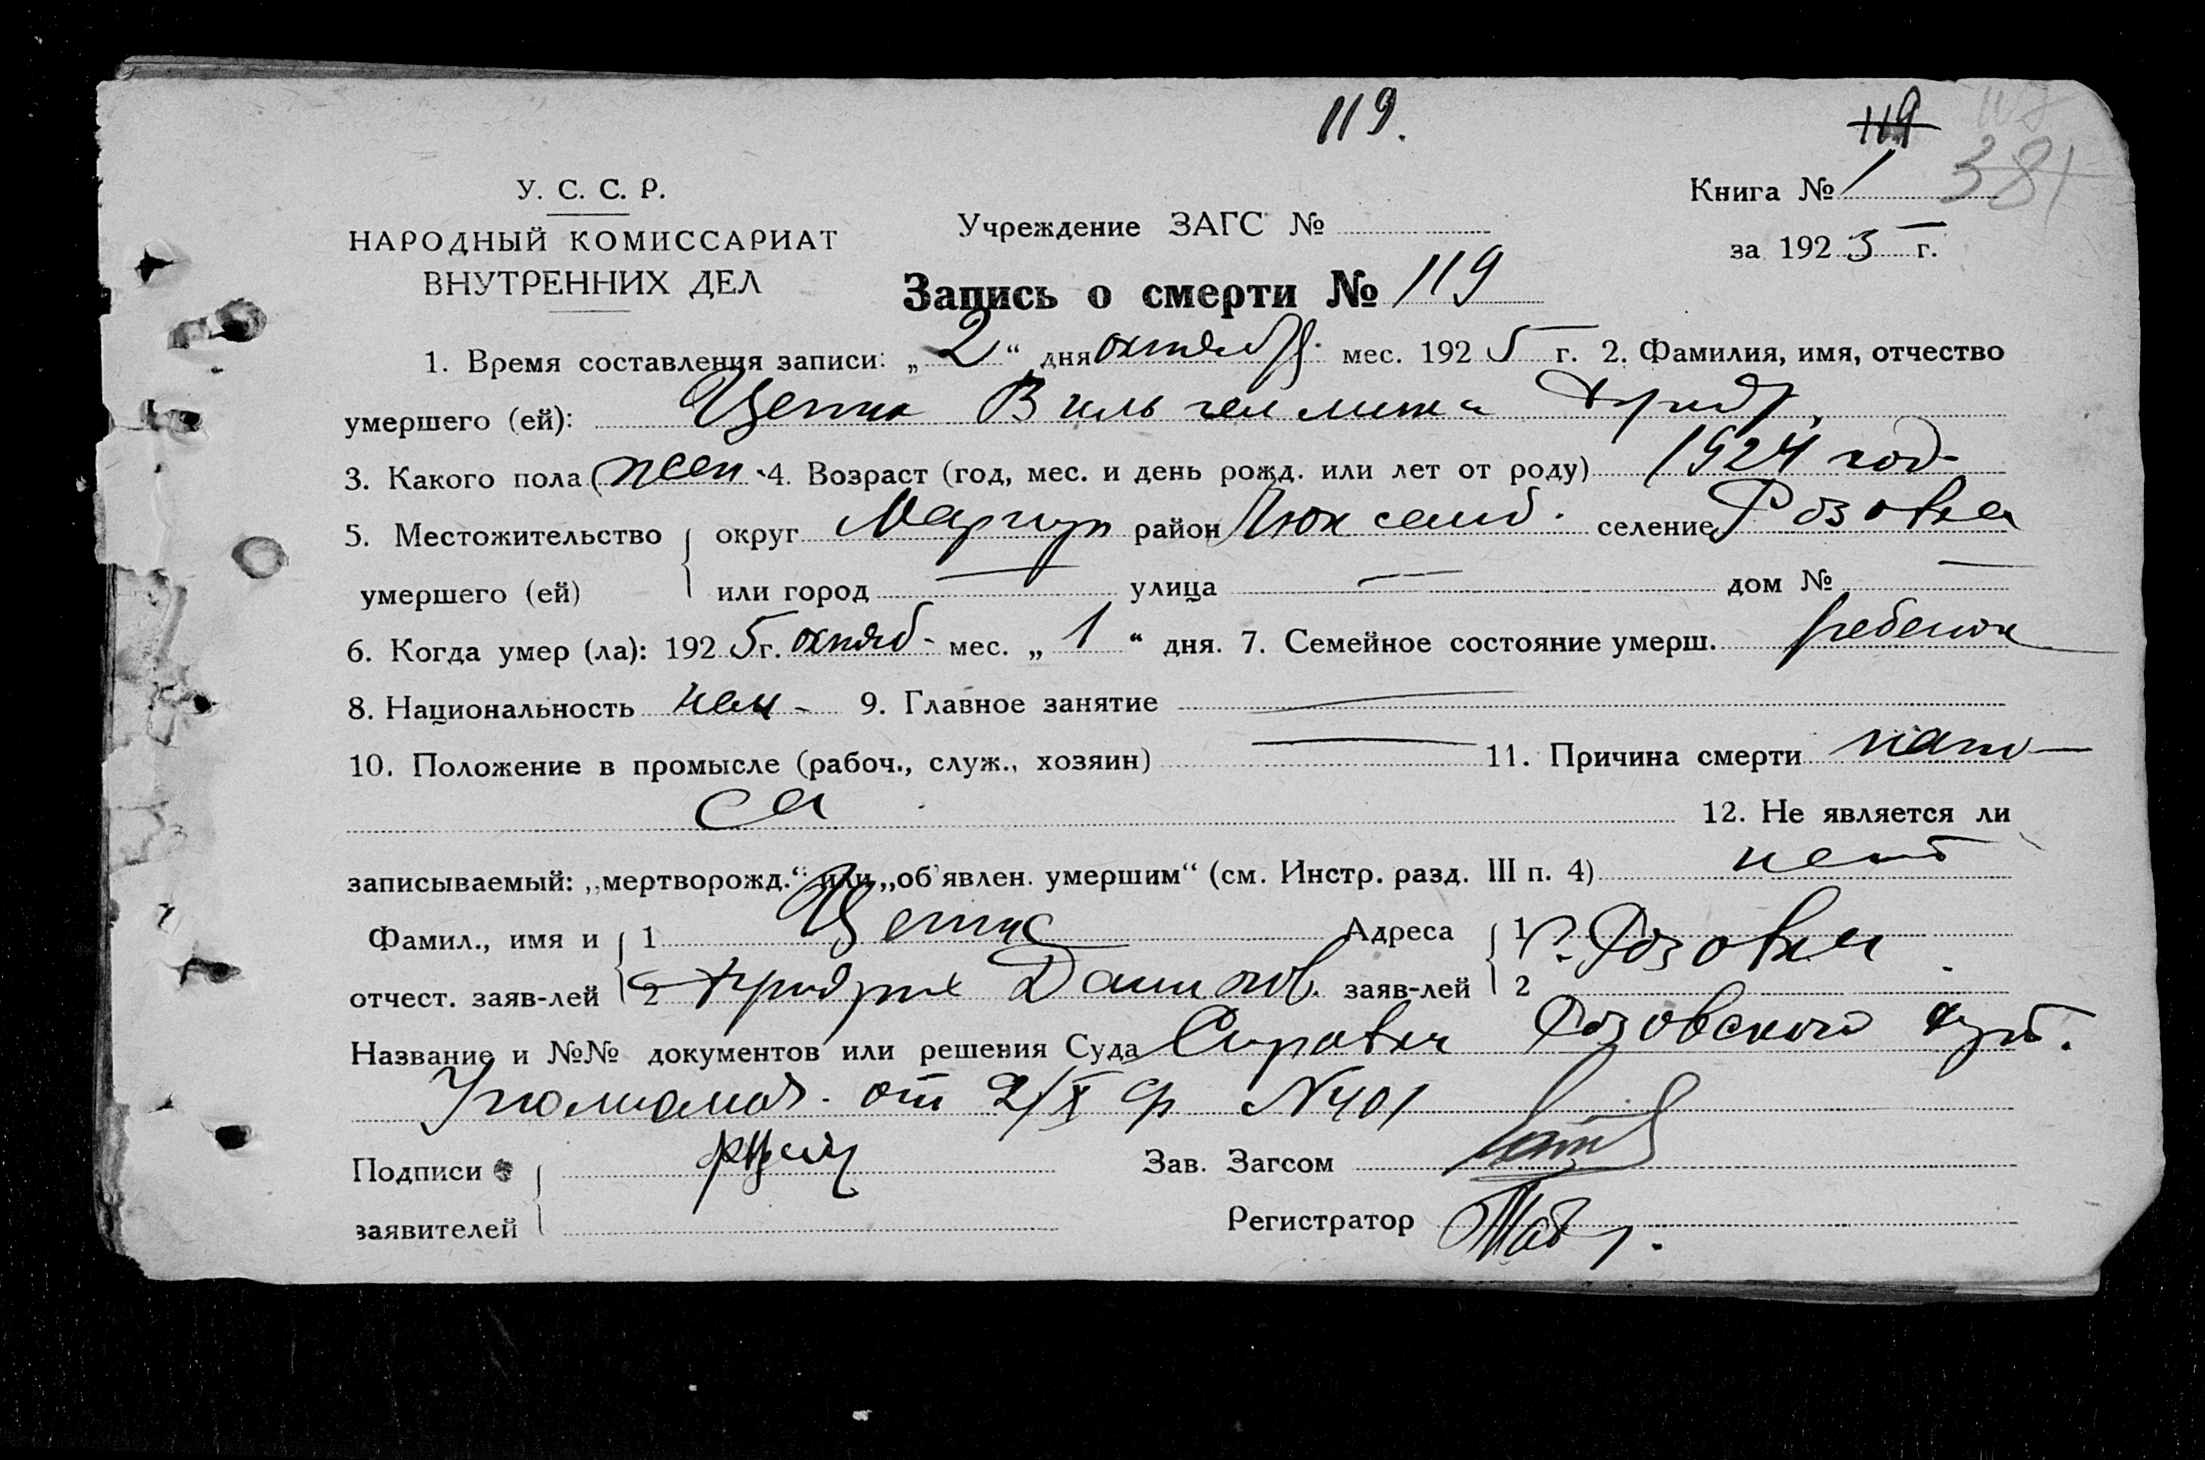 119. 119
381
У. С. С. Р.
НАРОДНЫЙ КОМИССАРИАТ
ВНУТРЕННИХ ДЕЛ
Учреждение ЗАГС №
Книга № 1
за 1925 г.
Запись о смерти № 119
1. Время составления записи: „2“ дня октября мес. 1925 г. 2. Фамилия, имя, отчество
умершего (ей): Вильгельмина Фридр.
3. Какого пола жен. 4. Возраст (год, мес. и день рожд. или лет от роду) 1924 год
5. Местожительство округ Мариуп район Люксемб. селение Розовка
умершего (ей) или город — улица — дом № —
6. Когда умер (ла): 1925 г. октяб- мес. „1“ дня. 7. Семейное состояние умерш. ребенок
8. Национальность нем- 9. Главное занятие —
10. Положение в промысле (рабоч., служ., хозяин) — 11. Причина смерти
12. Не является ли
записываемый: „мертворожд.“ или „об'явлен. умершим“ (см. Инстр. разд. III п. 4) нет
Фамил., имя и 1 Адреса 1 с. Розовка
отчест. заяв-лей 2 Фридрих Данилов. заяв-лей 2
Название и №№ документов или решения Суда Справка Розовского
от 2/X с/г N401
Подписи Зав. Загсом
заявителей Регистратор